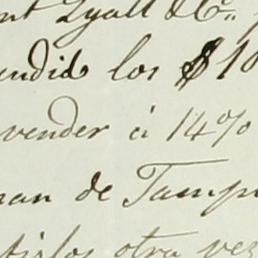 nt Lyall & Co.
endido los $ 10
vender à 14%
man de Tamp
tirlos otra vez